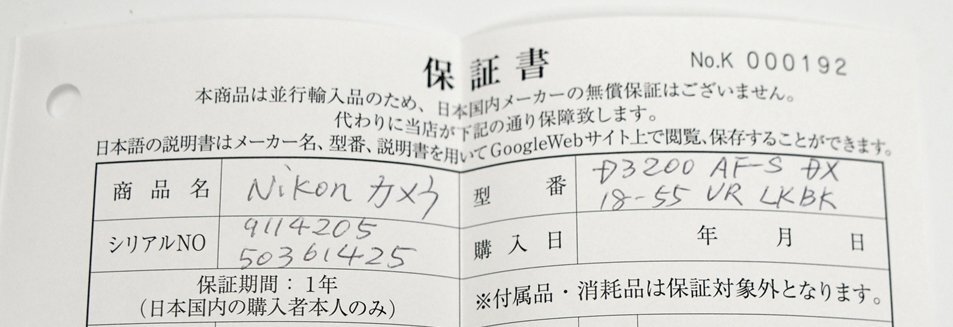 保証書
No.K 000192
本商品は並行輸入品のため、日本国内メーカーの無償保証はございません。
代わりに当店が下記の通り保障致します。
日本語の説明書はメーカー名、型番、説明書を用いてGoogleWebサイト上で閲覧、保存することができます。
商品名 Nikon カメラ
型番 D3200 AF-S DX
18-55 VR LKBK
シリアルNO 9114205
50361425
購入日 年 月 日
保証期間：1年
(日本国内の購入者本人のみ)
※付属品・消耗品は保証対象外となります。